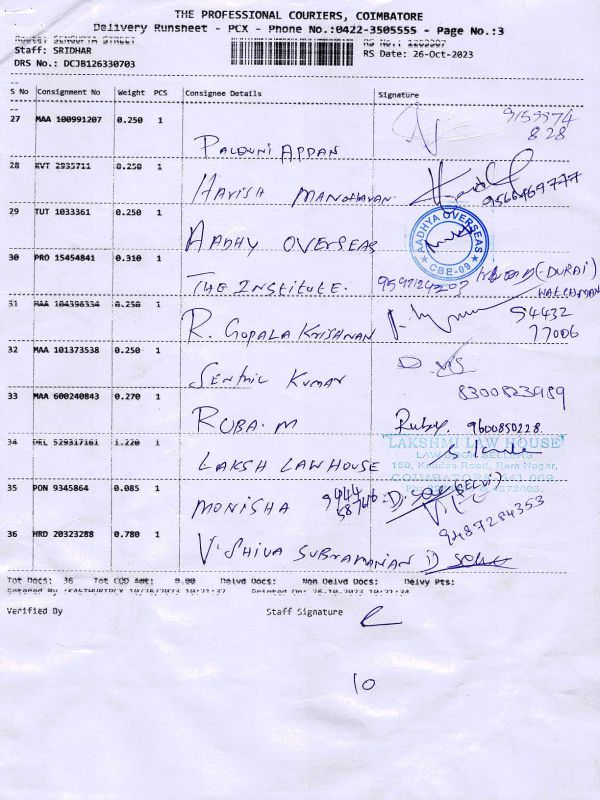 THE PROFESSIONAL COURIERS, COIMBATORE
Delivery Runsheet - PCX - Phone No.:0422-3505555 - Page No.:3
Route: SENGUPTA STREET
Staff: SRIDHAR
RS Date: 26-Oct-2023
DRS No.: DCJB126330703
S No Consignment No Weight PCS Consignee Details Signature
27 MAA 100991207 0.250 1
28 KVT 2935711 0.250 1 HARISH MANOHARAN
29 TUT 1033361 0.250 1 AADHY OVERSEAS AADHYA OVERSEAS CBE-09
30 PRO 15454841 0.310 1 THE INSTITUTE. (-DURAI)
WATCHMAN
31 MAA 104396334 0.250 1 R. GOPALA KRISHNAN 94432
77006
32 MAA 101373538 0.250 1 SENTHIL KUMAR
8300823989
33 MAA 600240843 0.270 1 RUBA. M 9600850228
34 DEL 529317161 1.220 1 LAKSH LAW HOUSE LAKSHMI LAW HOUSE
LAW BOOK SELLERS
150, Kalidas Road, Ram Nagar,
COIMBATORE-641 009
35 PON 9345864 0.085 1 MONISHA (SELVI)
9487284353
36 HRD 20323288 0.780 1 V. SHIVA SUBRAMANIAN
Tot Docs: 36 Tot COD Amt: 0.00 Delvd Docs: Non Delvd Docs: Delvy Pts:
Verified By Staff Signature
10